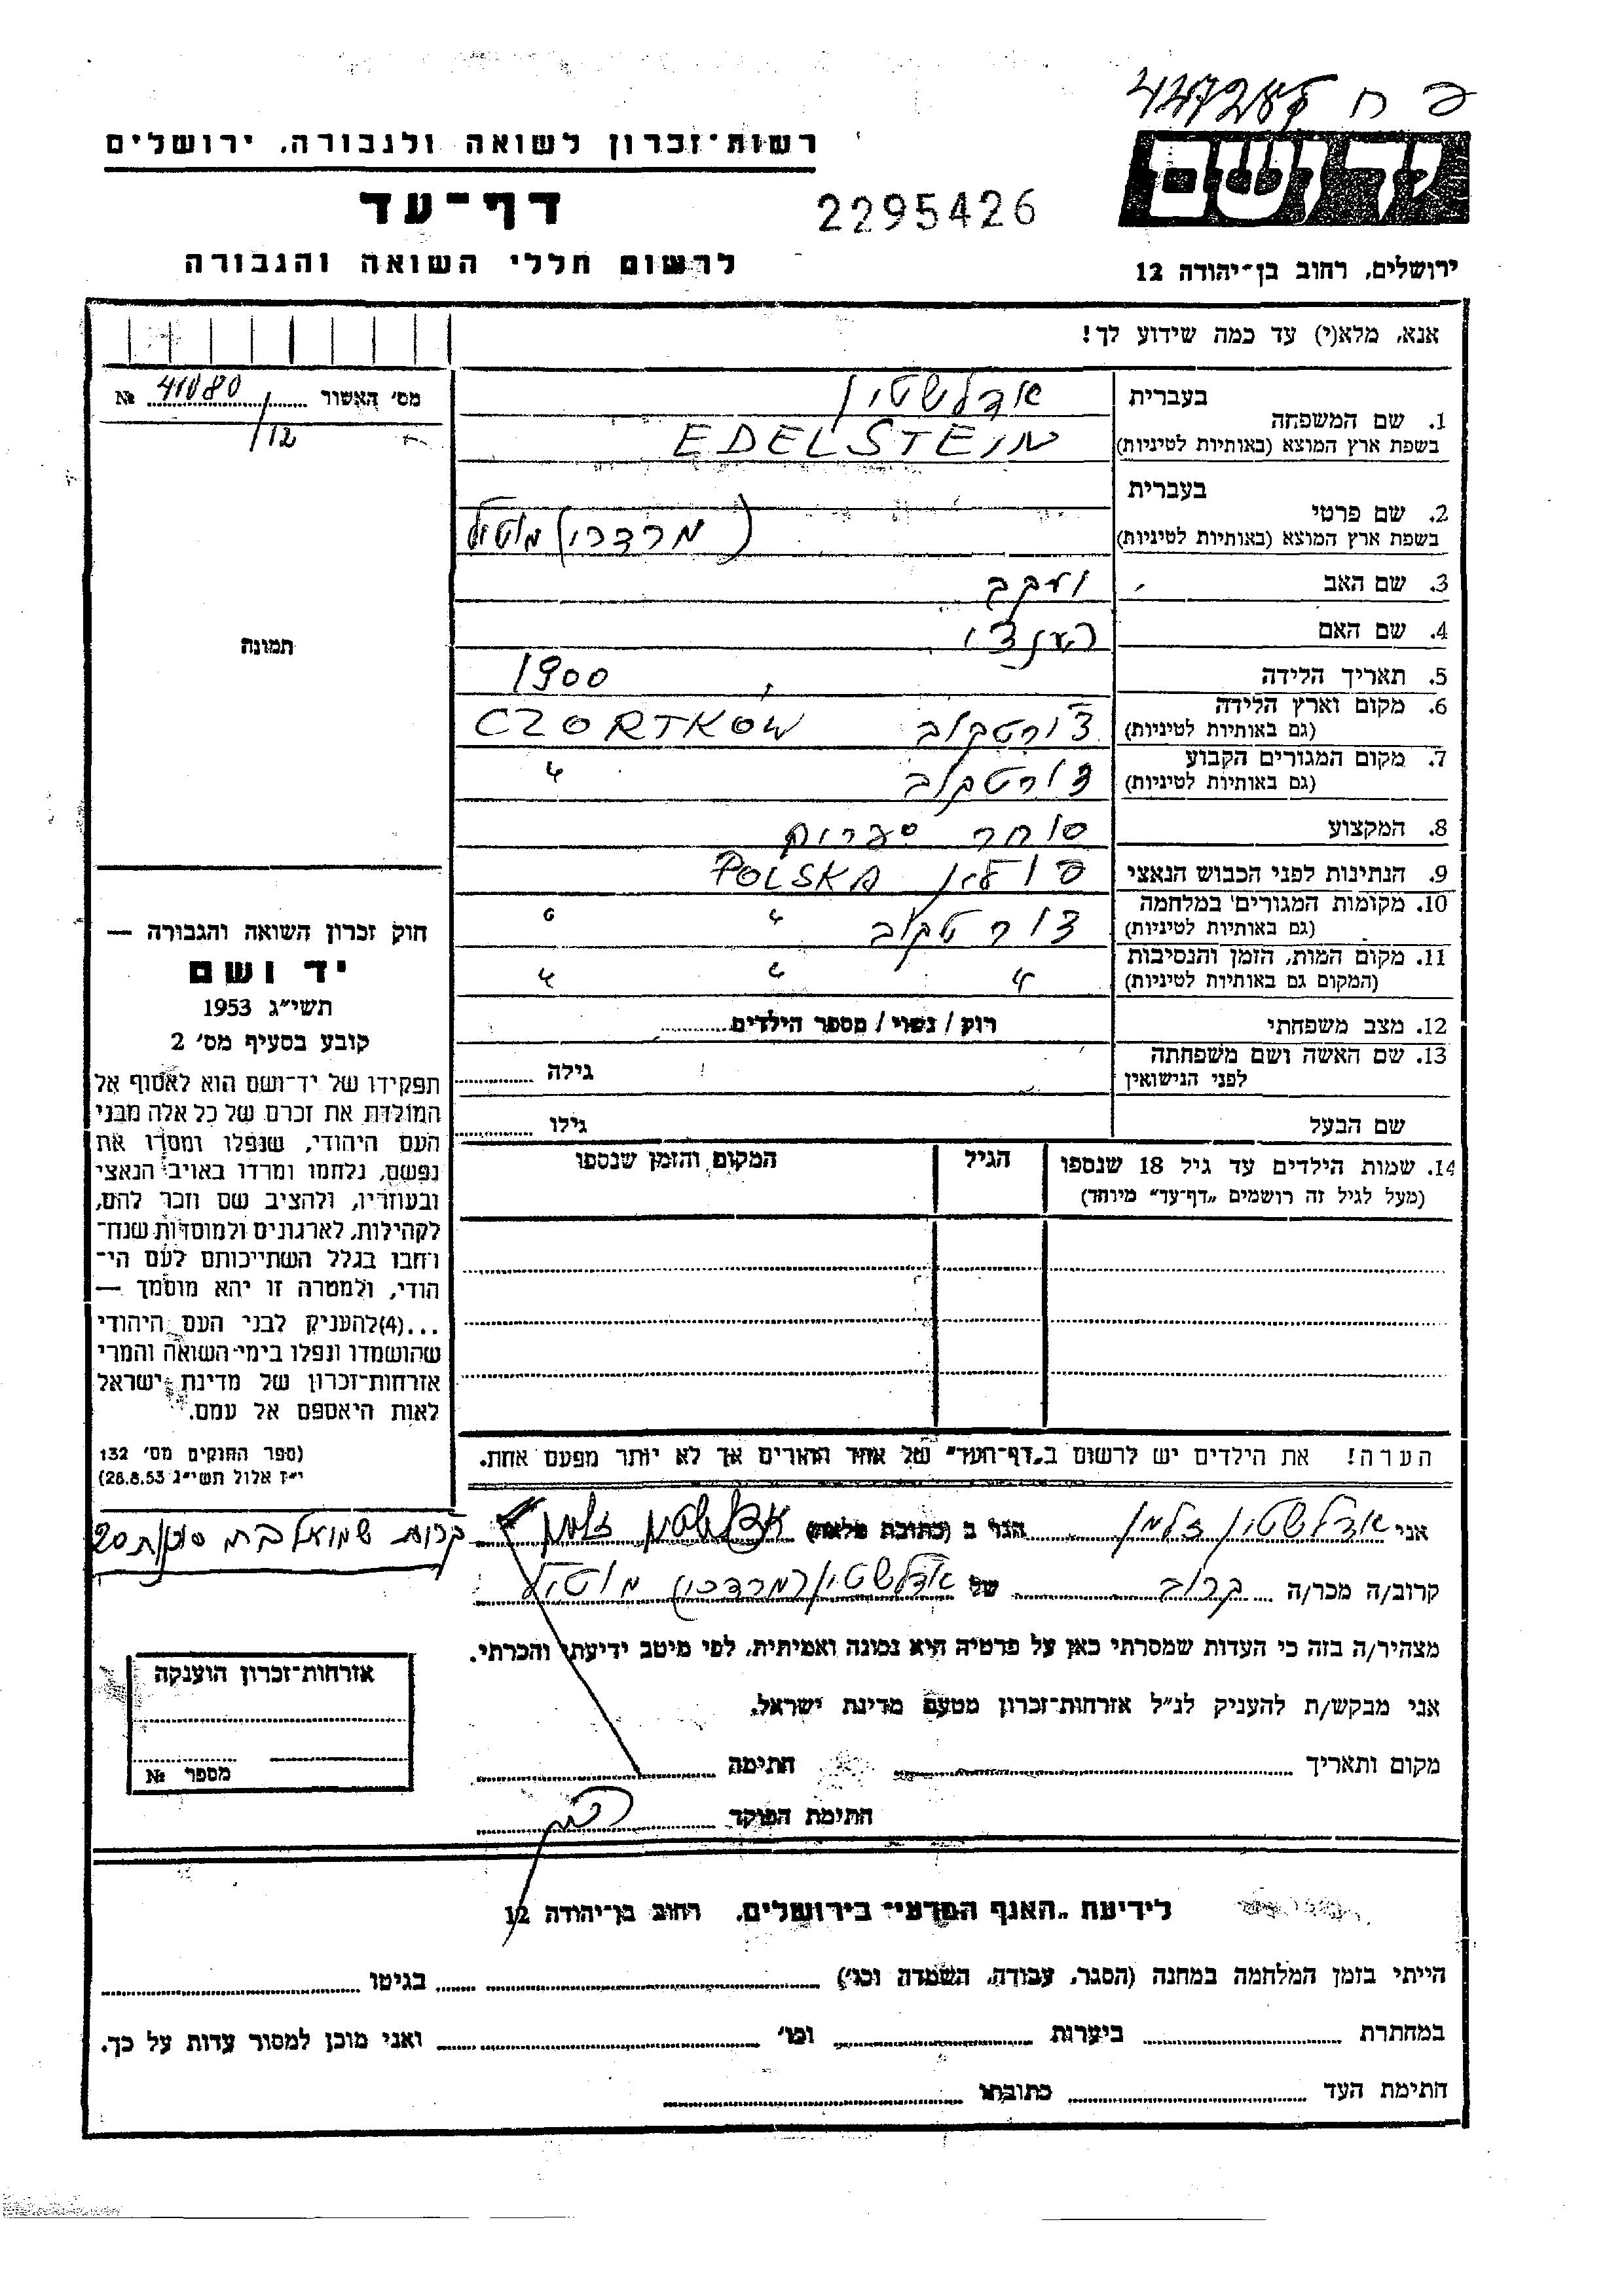 פ ח
רשות־זכרון לשואה ולגבורה, ירושלים
יד ושם
דף־עד
2295426
לרשום חללי השואה והגבורה
ירושלים, רחוב בן־יהודה 12
אנא, מלא(י) עד כמה שידוע לך!
מס' האשור 41080 №
/12
1. שם המשפחה
בעברית אדלשטיין
בשפת ארץ המוצא (באותיות לטיניות) EDELSTEIN
2. שם פרטי
בעברית
בשפת ארץ המוצא (באותיות לטיניות) (מרדכי) מוטיל
3. שם האב יעקב
4. שם האם
תמונה
5. תאריך הלידה 1900
6. מקום וארץ הלידה
(גם באותיות לטיניות) צ'ורטקוב CZORTKÓW
7. מקום המגורים הקבוע
(גם באותיות לטיניות) צורטקוב "
8. המקצוע סוחר סערות
9. הנתינות לפני הכבוש הנאצי פולין POLSKA
10. מקומות המגורים במלחמה
(גם באותיות לטיניות) צורטקוב " "
11. מקום המות, הזמן והנסיבות
(המקום גם באותיות לטיניות) " " "
12. מצב משפחתי רוק / נשוי / מספר הילדים
13. שם האשה ושם משפחתה
לפני הנישואין גילה
שם הבעל גילו
14. שמות הילדים עד גיל 18 שנספו הגיל המקום והזמן שנספו
(מעל לגיל זה רושמים „דף־עד” מיוחד)
חוק זכרון השואה והגבורה —
יד ושם
תשי"ג 1953
קובע בסעיף מס' 2
תפקידו של יד־ושם הוא לאסוף אל
המולדת את זכרם של כל אלה מבני
העם היהודי, שנפלו ומסרו את
נפשם, נלחמו ומרדו באויב הנאצי
ובעוזריו, ולהציב שם וזכר להם,
לקהילות, לארגונים ולמוסדות שנח־
רבו בגלל השתייכותם לעם הי־
הודי, ולמטרה זו יהא מוסמך —
...(4)להעניק לבני העם היהודי
שהושמדו ונפלו בימי השואה והמרי
אזרחות־זכרון של מדינת ישראל
לאות היאספם אל עמם.
(ספר החוקים מס' 132
י"ז אלול תשי"ג 28.8.53)
הערה! את הילדים יש לרשום ב„דף־העד” של אחד ההורים אך לא יותר מפעם אחת.
אני אדלשטיין זלמן הגר ב (כתובת מלאה) אדלשטיין זלמן
קרוב/ה מכר/ה קרוב של אדלשטיין (מרדכי) מוטיל
מצהיר/ה בזה כי העדות שמסרתי כאן על פרטיה היא נכונה ואמיתית, לפי מיטב ידיעתי והכרתי.
אני מבקש/ת להעניק לנ"ל אזרחות־זכרון מטעם מדינת ישראל.
מקום ותאריך חתימה
חתימת הפוקד
אזרחות־זכרון הוענקה
מספר №
לידיעת „האגף המדעי” בירושלים, רחוב בן־יהודה 12
הייתי בזמן המלחמה במחנה (הסגר, עבודה, השמדה וכו') בגיטו
במחתרת ביערות וכו' ואני מוכן למסור עדות על כך.
חתימת העד כתובתו